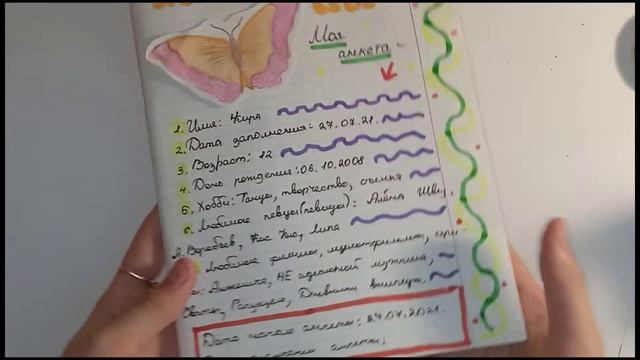 Моя
анкета
1. Имя: Кира
2. Дата заполнения: 27.07.21.
3. Возраст: 12
4. День рождения: 06.10.2008
5. Хобби: Танцы, творчество, съёмка
6. Любимые певцы(певицы): Алёна Швец,
А. Воробьёв, Кис Кис, Лила
Любимые фильмы, мультфильмы,
НЕ идеальный мужчина,
Сваты, Дневники вампира,
Дата начала анкеты: 27.07.2021.
анкеты: